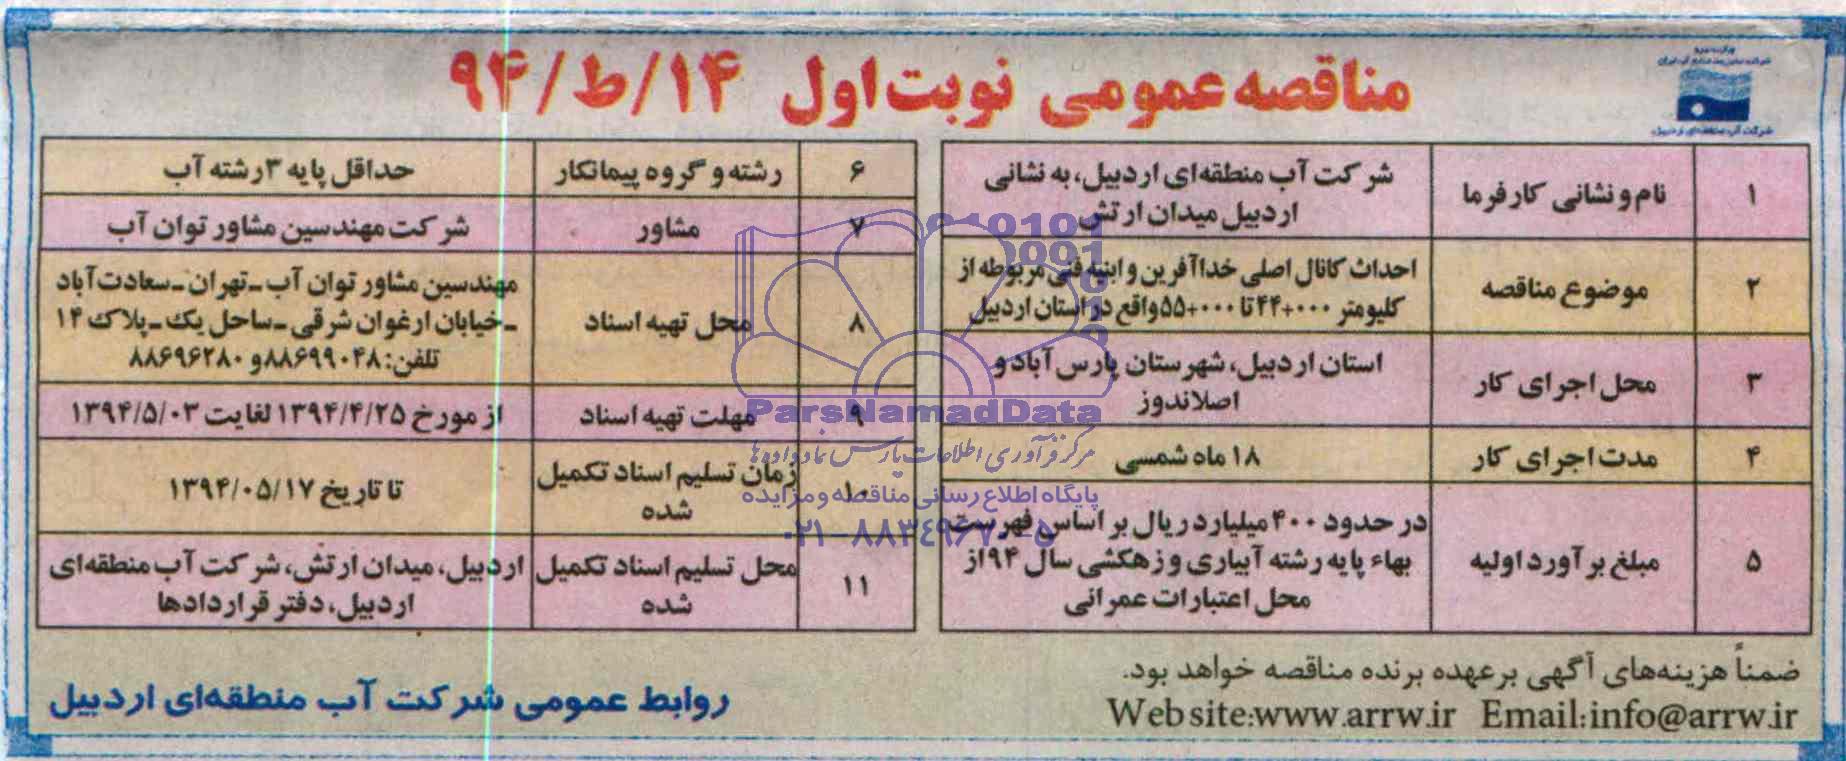 وزارت نیرو
شرکت مدیریت منابع آب ایران
شرکت آب منطقه‌ای اردبیل
مناقصه عمومی نوبت اول ۱۴/ط/۹۴
۱ نام و نشانی کارفرما شرکت آب منطقه‌ای اردبیل، به نشانی
اردبیل میدان ارتش
۲ موضوع مناقصه احداث کانال اصلی خداآفرین و ابنیه فنی مربوطه از
کلیومتر ۰۰۰+۴۴ تا ۰۰۰+۵۵ واقع در استان اردبیل
۳ محل اجرای کار استان اردبیل، شهرستان پارس آباد و
اصلاندوز
۴ مدت اجرای کار ۱۸ ماه شمسی
۵ مبلغ برآورد اولیه در حدود ۴۰۰ میلیارد ریال بر اساس فهرست
بهاء پایه رشته آبیاری و زهکشی سال ۹۴ از
محل اعتبارات عمرانی
۶ رشته و گروه پیمانکار حداقل پایه ۳ رشته آب
۷ مشاور شرکت مهندسین مشاور توان آب
۸ محل تهیه اسناد مهندسین مشاور توان آب-تهران-سعادت آباد
-خیابان ارغوان شرقی-ساحل یک-پلاک ۱۴
تلفن: ۸۸۶۹۹۰۴۸ و ۸۸۶۹۶۲۸۰
۹ مهلت تهیه اسناد از مورخ ۱۳۹۴/۴/۲۵ لغایت ۱۳۹۴/۵/۰۳
۱۰ زمان تسلیم اسناد تکمیل
شده تا تاریخ ۱۳۹۴/۰۵/۱۷
۱۱ محل تسلیم اسناد تکمیل
شده اردبیل، میدان ارتش، شرکت آب منطقه‌ای
اردبیل، دفتر قراردادها
ParsNamadData
مرکز فرآوری اطلاعات پارس نماد داده‌ها
پایگاه اطلاع رسانی مناقصه و مزایده
۰۲۱-۸۸۳۴۹۶۷۰-۵
ضمناً هزینه‌های آگهی برعهده برنده مناقصه خواهد بود.
Website:www.arrw.ir Email:info@arrw.ir
روابط عمومی شرکت آب منطقه‌ای اردبیل